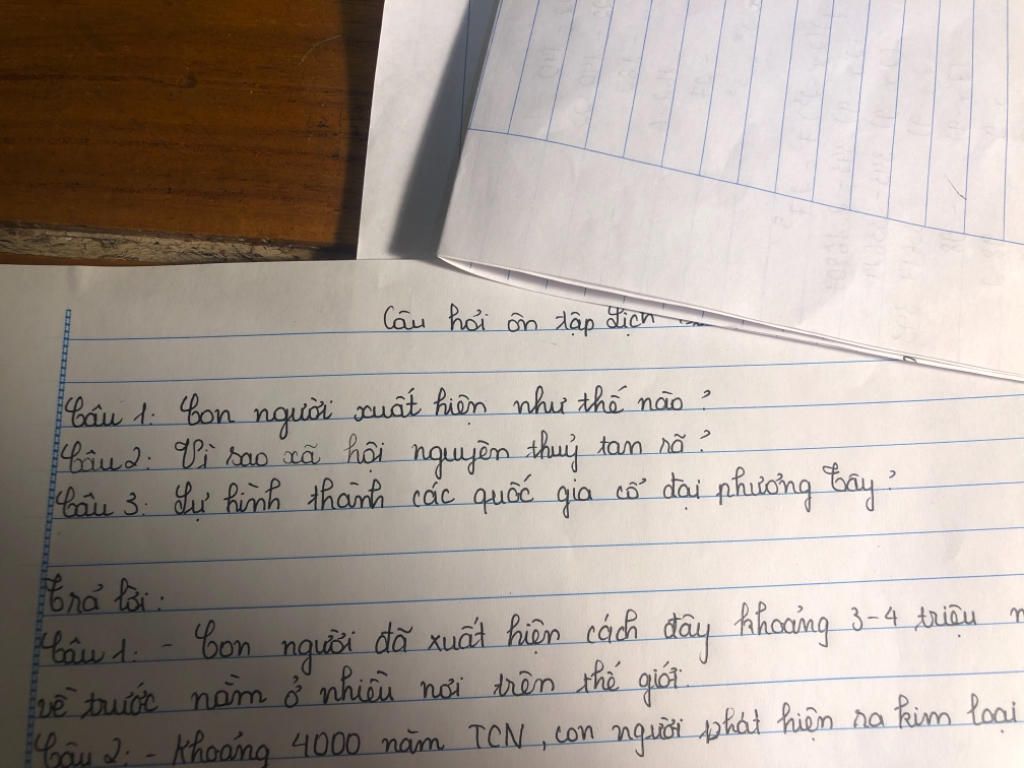 Câu hỏi ôn tập Lịch
Câu 1: Con người xuất hiện như thế nào?
Câu 2: Vì sao xã hội nguyên thuỷ tan rã?
Câu 3: Sự hình thành các quốc gia cổ đại phương Tây?
Trả lời:
Câu 1: - Con người đã xuất hiện cách đây khoảng 3-4 triệu
về trước nằm ở nhiều nơi trên thế giới.
Câu 2: - Khoảng 4000 năm TCN, con người phát hiện ra kim loại